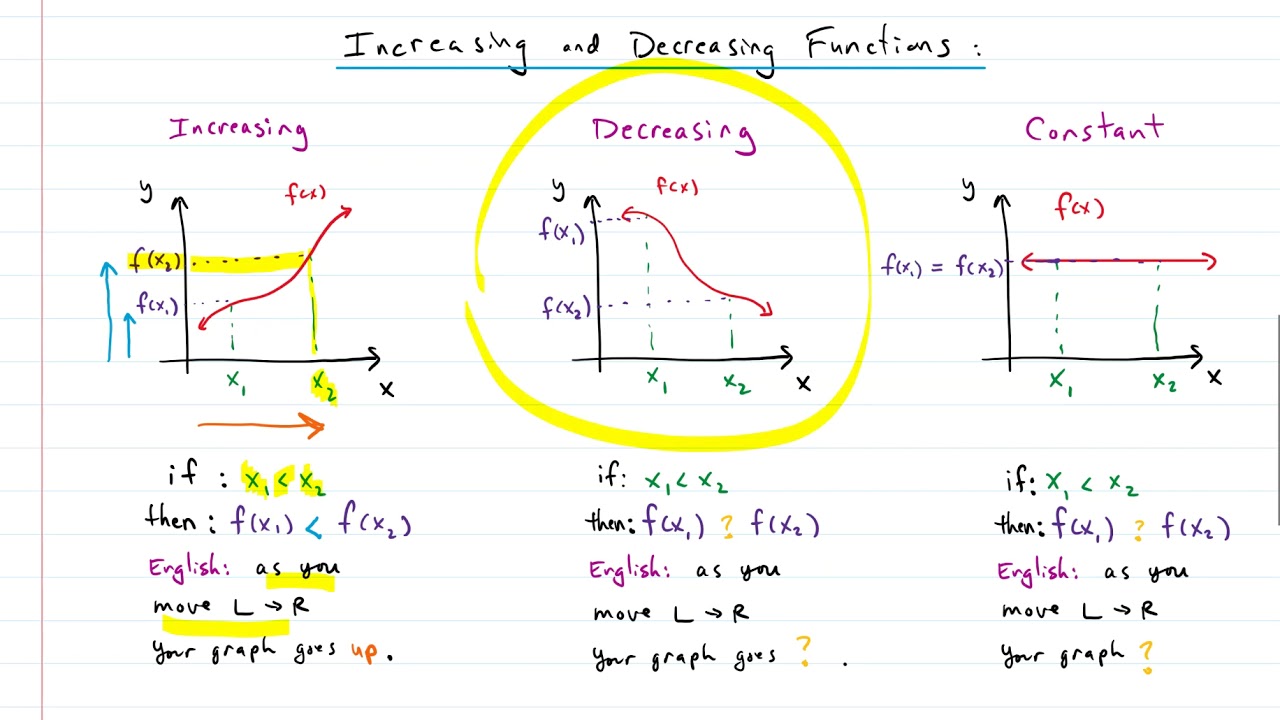 Increasing and Decreasing Functions:
Increasing
y
f(x)
f(x₂)
f(x₁)
x₁
x₂
x
if : x₁ < x₂
then: f(x₁) < f(x₂)
English: as you
move L → R
Your graph goes up.
Decreasing
y
f(x)
f(x₁)
f(x₂)
x₁
x₂
x
if: x₁ < x₂
then: f(x₁) ? f(x₂)
English: as you
move L → R
Your graph goes ? .
Constant
y
f(x)
f(x₁) = f(x₂)
x₁
x₂
x
if: x₁ < x₂
then: f(x₁) ? f(x₂)
English: as you
move L → R
Your graph ?